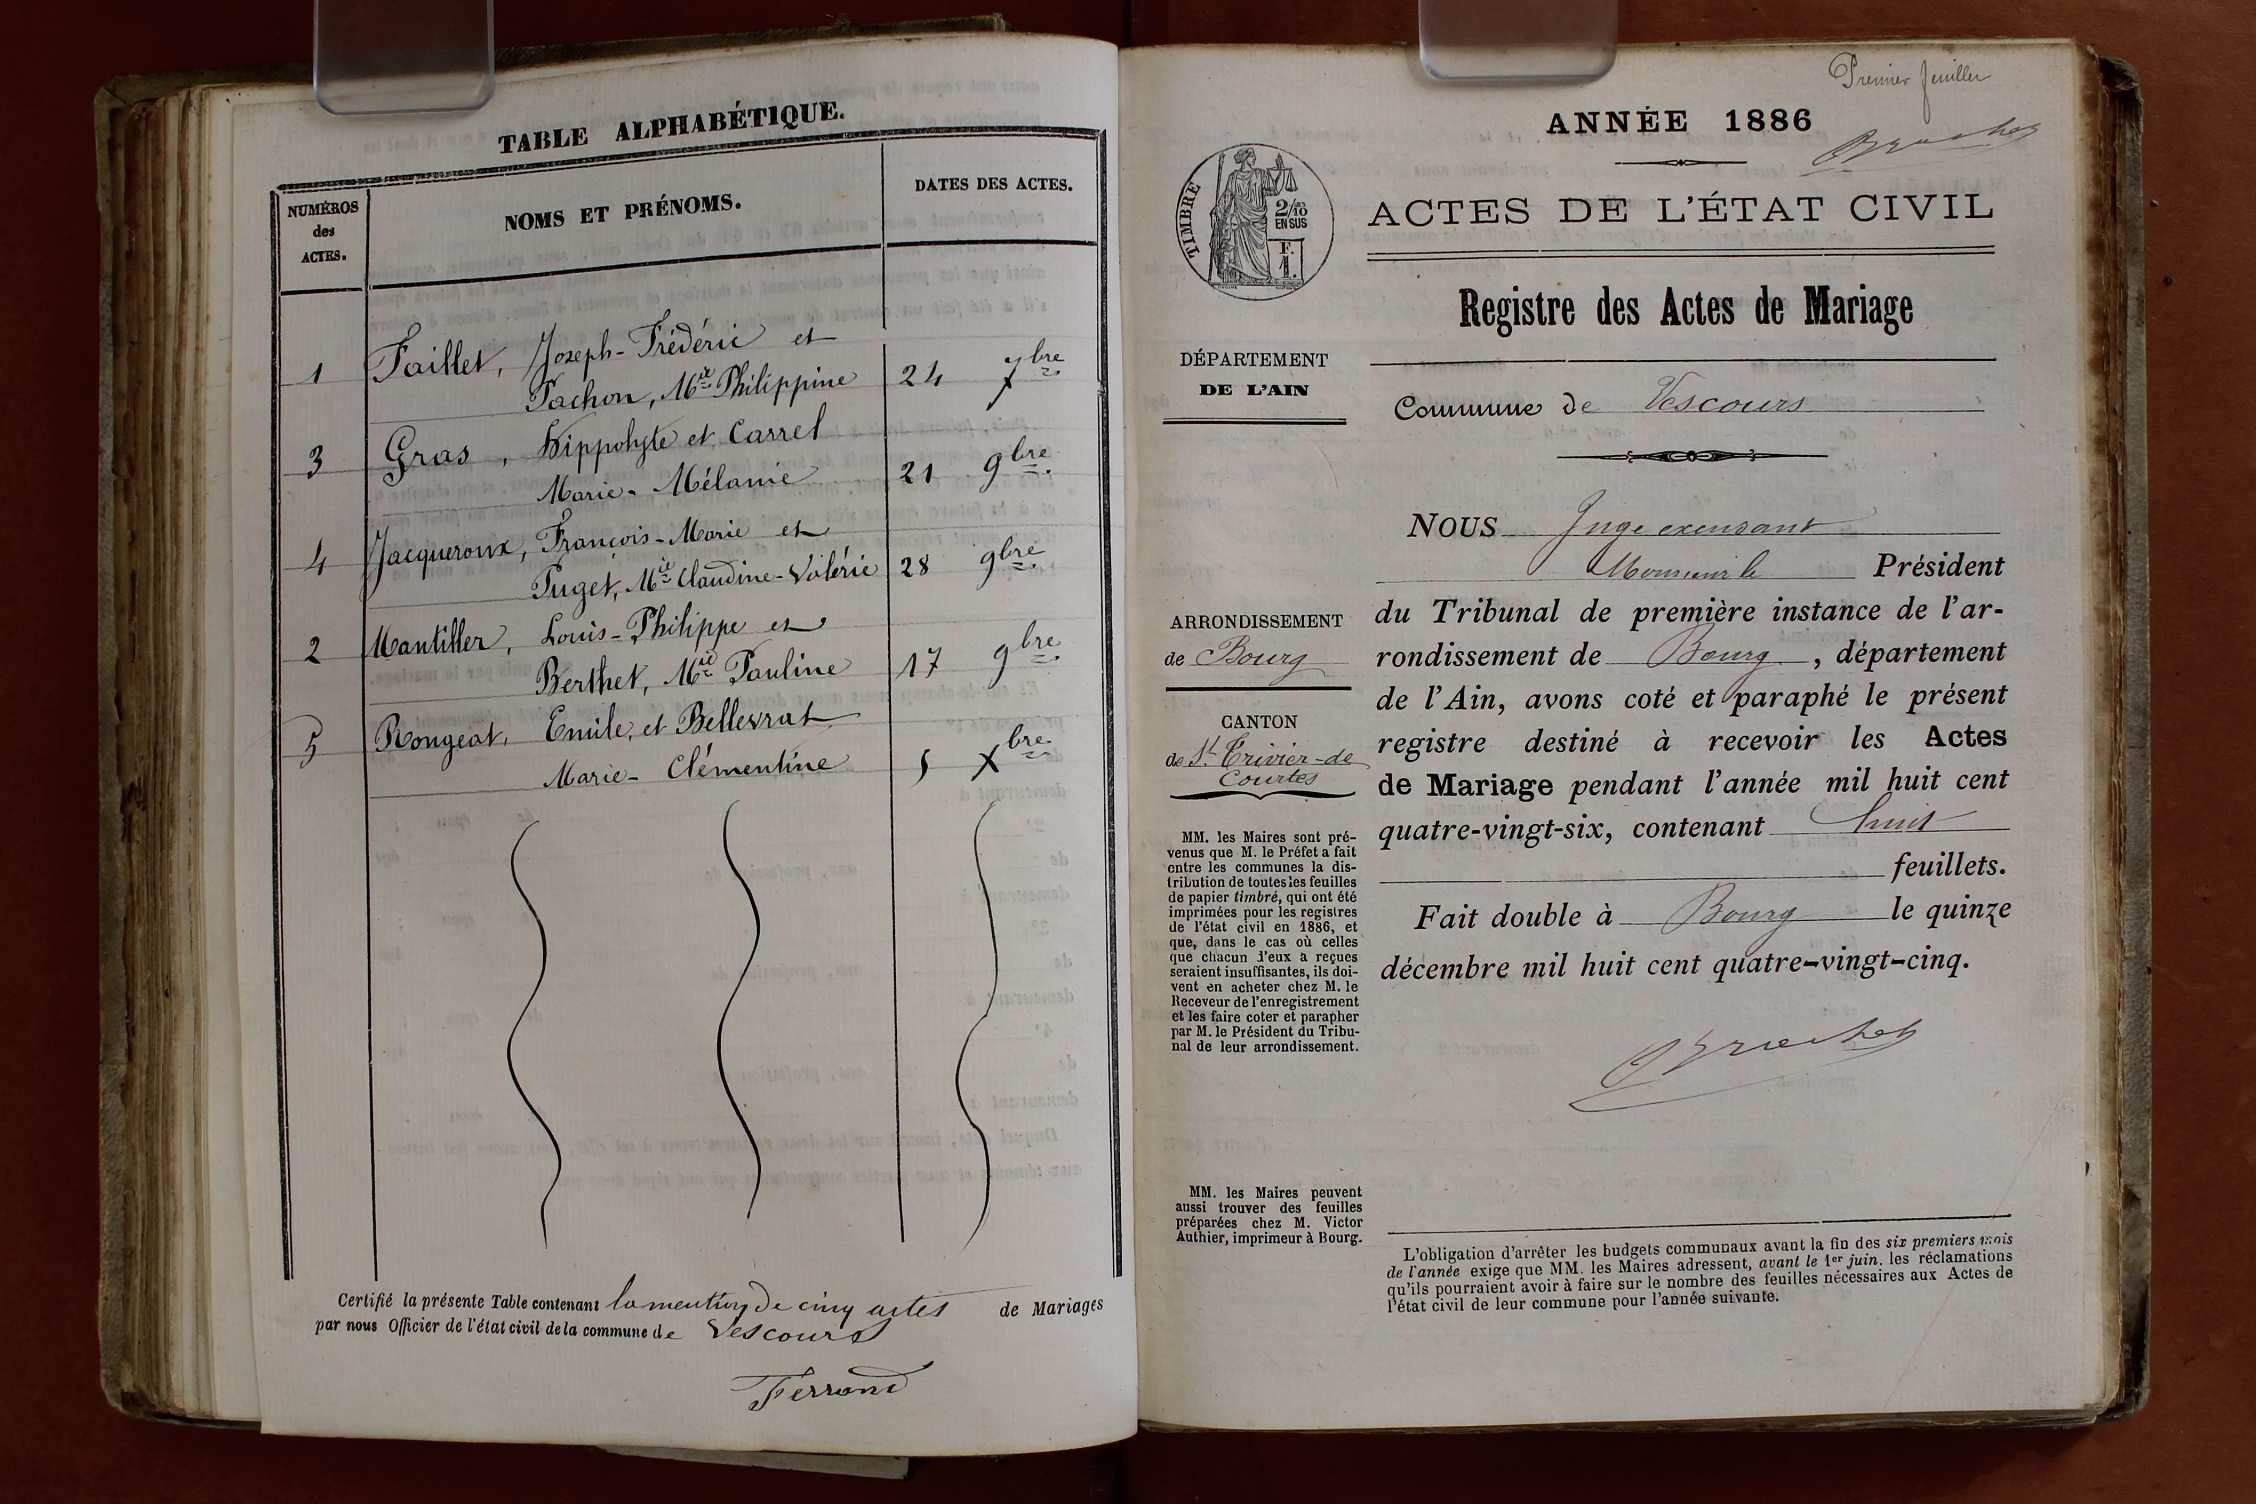 TABLE ALPHABÉTIQUE.
NUMÉROS
des
ACTES.
NOMS ET PRÉNOMS.
DATES DES ACTES.
1 Faillet, Joseph-Frédéric et
Pachon, Mie Philippine 24 7bre
3 Gras, Hippolyte et Carrel
Marie-Mélanie 21 9bre.
4 Jacqueroux, François-Marie et
Puget, Mie Claudine-Valérie 28 9bre.
2 Mantiller, Louis-Philippe et
Berthet, Mie Pauline 17 9bre.
5 Rongeat, Emile, et Bellevrat
Marie-Clémentine 5 Xbre
Certifié la présente Table contenant la mention de cinq actes de Mariages
par nous Officier de l'état civil de la commune de Vescours
Ferrand
Premier feuillet
ANNÉE 1886
Brochet
TIMBRE
2/10
EN SUS
F.
1.
ACTES DE L'ÉTAT CIVIL
Registre des Actes de Mariage
DÉPARTEMENT
DE L'AIN
Commune de Vescours
ARRONDISSEMENT
de Bourg
CANTON
de St Trivier-de
Courtes
MM. les Maires sont pré-
venus que M. le Préfet a fait
entre les communes la dis-
tribution de toutes les feuilles
de papier timbré, qui ont été
imprimées pour les registres
de l'état civil en 1886, et
que, dans le cas où celles
que chacun d'eux a reçues
seraient insuffisantes, ils doi-
vent en acheter chez M. le
Receveur de l'enregistrement
et les faire coter et parapher
par M. le Président du Tribu-
nal de leur arrondissement.
MM. les Maires peuvent
aussi trouver des feuilles
préparées chez M. Victor
Authier, imprimeur à Bourg.
NOUS Juge excusant
Monsieur le Président
du Tribunal de première instance de l'ar-
rondissement de Bourg, département
de l'Ain, avons coté et paraphé le présent
registre destiné à recevoir les Actes
de Mariage pendant l'année mil huit cent
quatre-vingt-six, contenant huit
feuillets.
Fait double à Bourg le quinze
décembre mil huit cent quatre-vingt-cinq.
Brochet
L'obligation d'arrêter les budgets communaux avant la fin des six premiers mois
de l'année exige que MM. les Maires adressent, avant le 1er juin, les réclamations
qu'ils pourraient avoir à faire sur le nombre des feuilles nécessaires aux Actes de
l'état civil de leur commune pour l'année suivante.